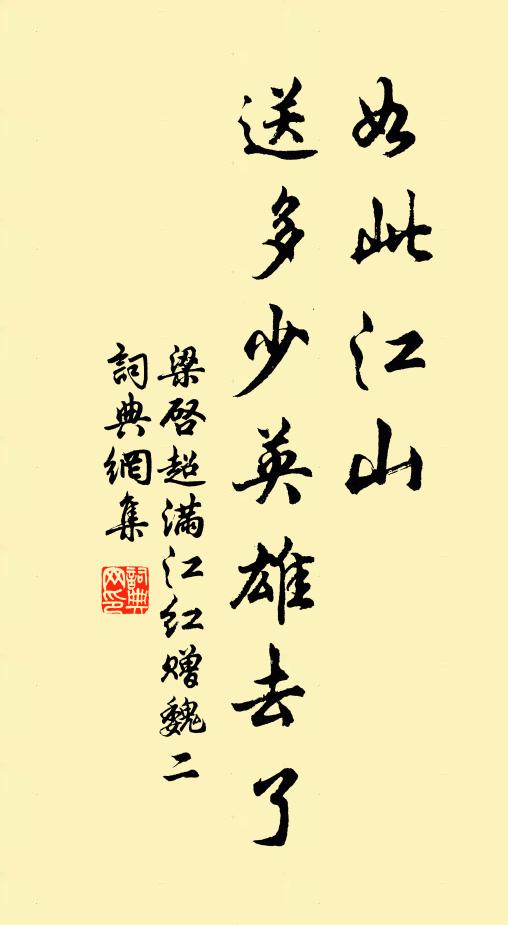 如此江山
送多少英雄去了
梁啓超满江红赠魏二
詞典網集
詞典网印